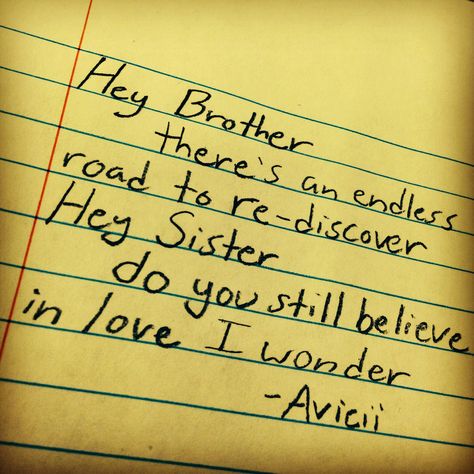 Hey Brother
there's an endless
road to re-discover
Hey Sister
do you still believe
in love I wonder
-Avicii